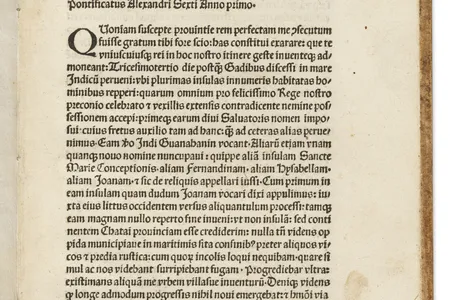 Pontificatus Alexandri Sexti Anno primo.
QUoniam suscepte prouintie rem perfectam me ꝯsecutum
fuisse gratum tibi fore scio: has constitui exarare: que te
vniuscuiusqꝫ rei in hoc nostro itinere geste inuenteqꝫ ad-
moneant: Tricesimotertio die postꝙ̃ Gadibus discessi in mare
Indicũ perueni: vbi plurimas insulas innumeris habitatas ho-
minibus repperi: quarum omnium pro felicissimo Rege nostro
preconio celebrato ⁊ vexillis extensis contradicente nemine pos-
sessionem accepi: primeqꝫ earum diui Saluatoris nomen impo-
sui: cuius fretus auxilio tam ad hanc: ꝙ̃ ad ceteras alias perue-
nimus. Eam ꝟo Indi Guanahanin vocant. Aliarũ etiam vnam
quanqꝫ nouo nomine nuncupaui: quippe aliã insulam Sancte
Marie Conceptionis. aliam Fernandinam. aliam Hysabellam.
aliam Joanam. ⁊ sic de reliquis appellari iussi. Cum primum in
eam insulam quam dudum Joanam vocari dixi appulimus: iu-
xta eius littus occidentem versus aliquantulum processi: tamqꝫ
eam magnam nullo reperto fine inueni: vt non insulã: sed conti
nentem Chatai prouinciam esse crediderim: nulla tñ videns op
pida municipiaue in maritimis sita confinibꝰ preter aliquos vi-
cos ⁊ predia rustica: cum quoꝝ incolis loqui nequibam. quare si
mul ac nos videbant surripiebant fugam. Progrediebar vltra:
existimans aliquã me vrbem villasue inuenturũ. Deniqꝫ videns
ꝙ longe admodum progressis nihil noui emergebat: ⁊ hmõi via